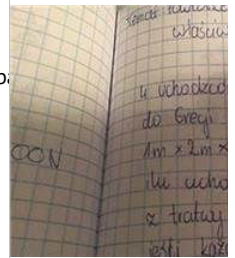 właściw
4 uchodźcó
do Grecji
1m × 2m ×
OON
ilu ucho
z tratwy
jeśli każd